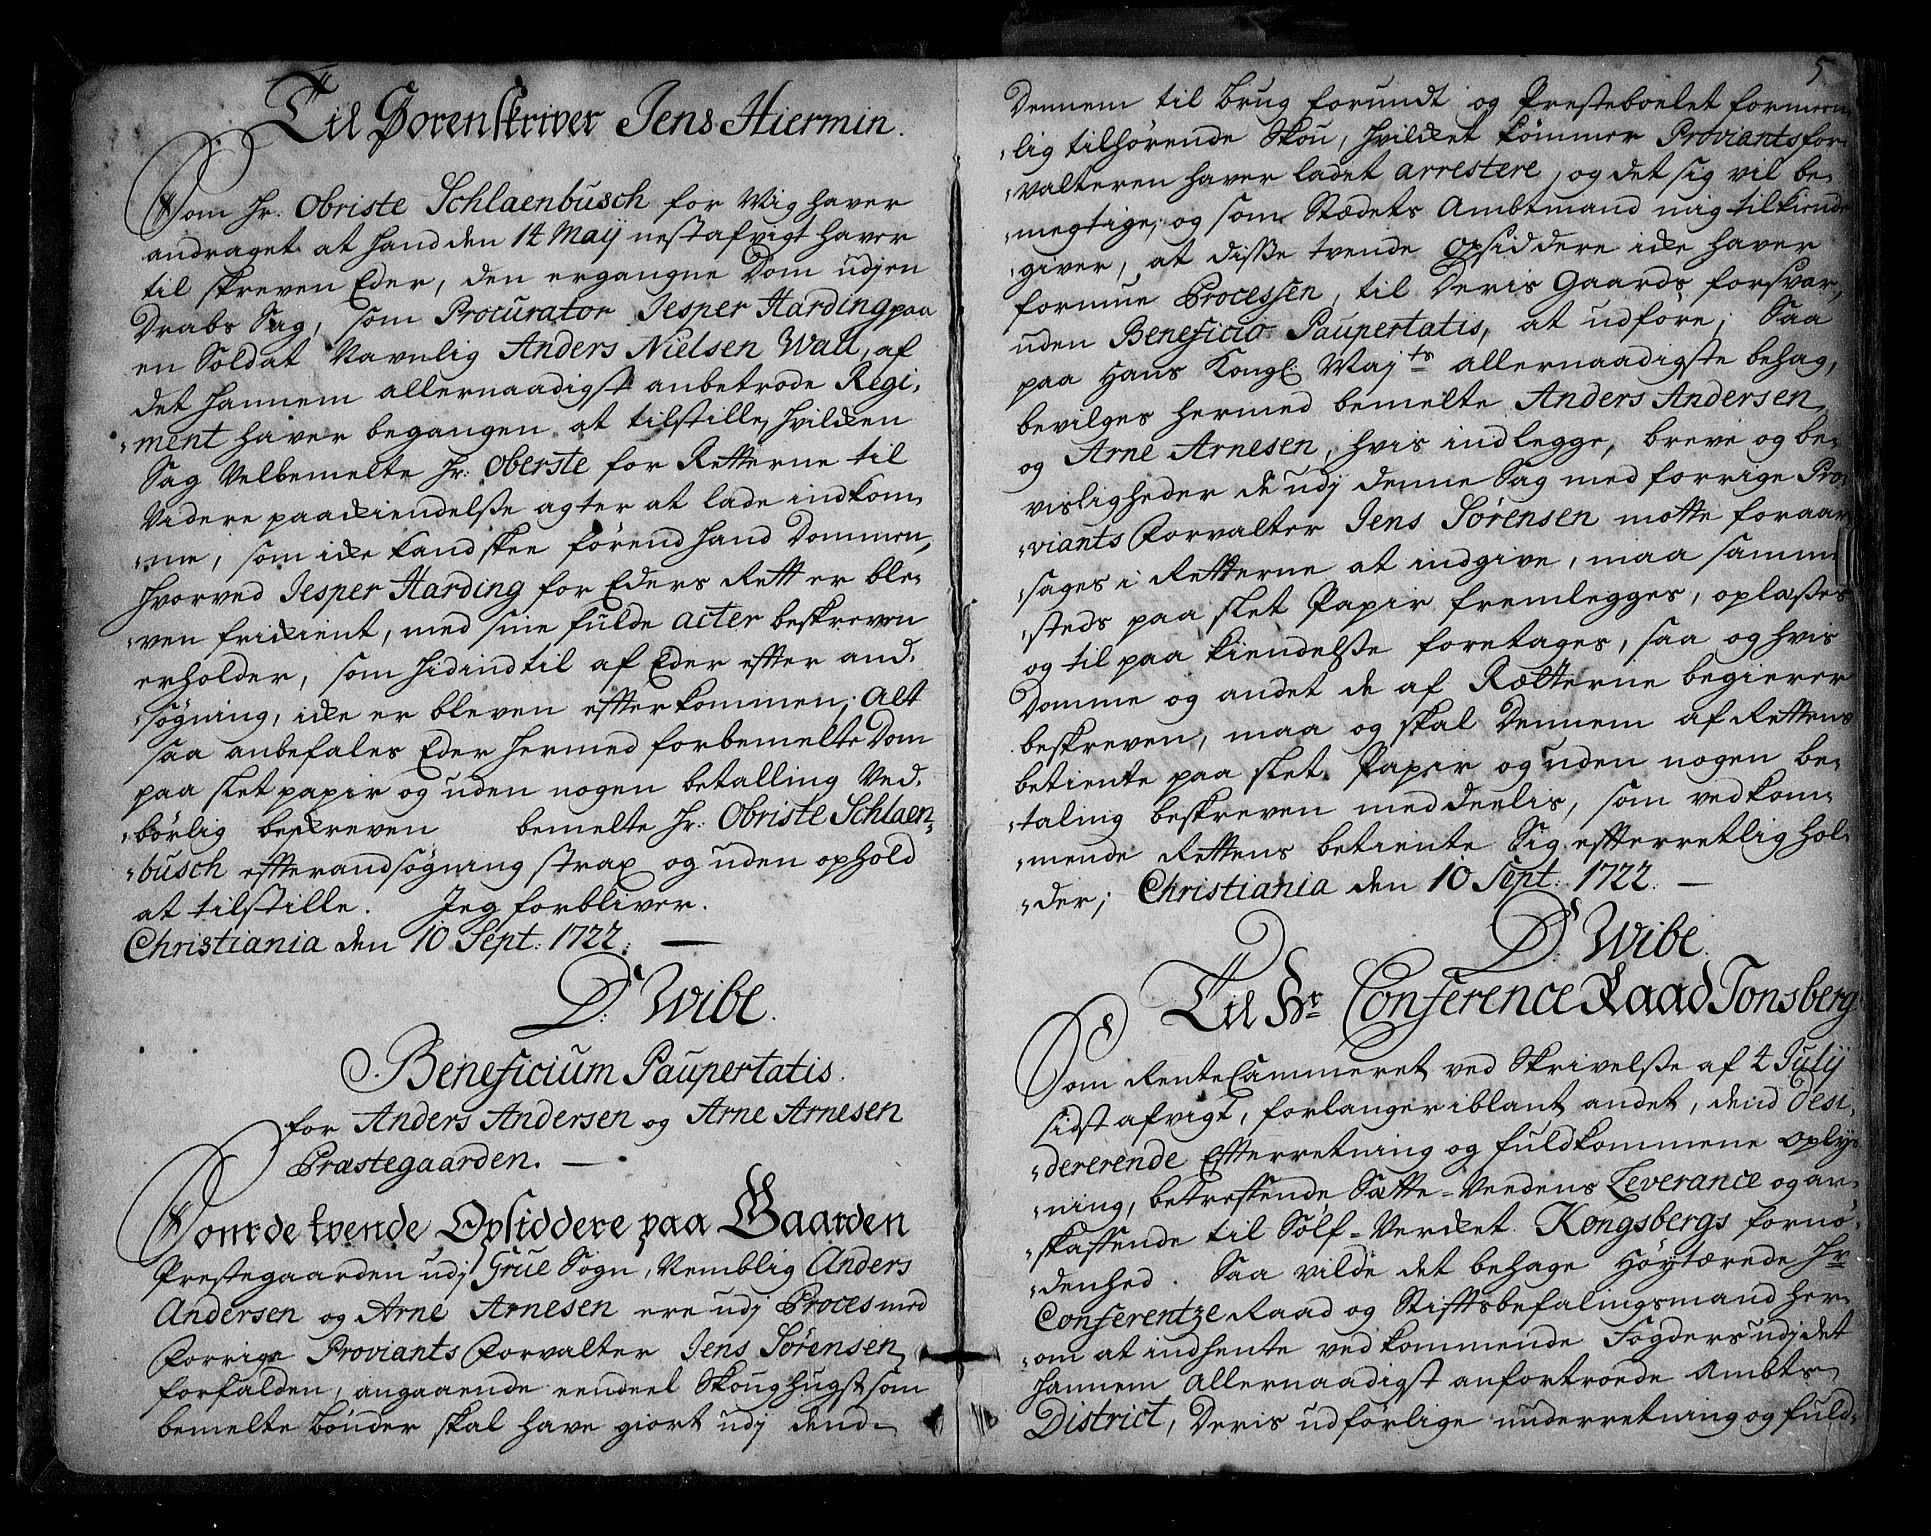 Til Sorenskriver Jens Hiermin.
Som Hr: Obriste Schlaenbusch for Mig haver
andraget at hand den 14 Maij nestafvigt haver
til skreven Eder, den ergangne Dom udj en
Drabs Sag, som Procurator Jesper Harding paa
en Soldat Navnlig Anders Nielsen Wall, af
det hannem allernaadigst anbetrode Regi-
ment haver begangen at tilstille, hvilken
Sag Velbemelte Hr: Oberste for Retterne til
Videre paakiendelsse agter at lade indkom-
me, som icke kand skee førend hand Dommen,
hvorved Jesper Harding for Eders Rett er ble-
ven frikient, med sine fulde acter beskreven
erholder, som hidindtil af Eder effter and-
søgning, icke er bleven effterkommen; Alt
saa anbefales Eder hermed forbemelte Dom
paa slet papir og uden nogen betalling Ved-
børlig beskreven bemelte Hr: Obriste Schlaen-
busch effter andsøgning strax og uden ophold
at tilstille. Jeg forbliver.
Christiania den 10 Sept: 1722.
D: Wibe.
Beneficium Paupertatis.
for Anders Andersen og Arne Arnesen
Præstegaarden.
Som de tvende Opsiddere paa Gaarden
Prestegaarden udj Grue Sogn, Nemblig Anders
Andersen og Arne Arnesen ere udj Proces med
Forrige Proviants Forvalter Jens Sørensen
forfalden, angaaende eendeel Skoug hugst som
bemelte Bønder skal have giort udj dend
5
Dennem til Brug forundt og Presteboelet formeen-
lig tilhørende Skou, hvilcket tømmer Proviantsfor-
valteren haver ladet arrestere, og det sig vil be-
megtige; og som Stædets Ambtmand mig tilkiende
giver, at disse tvende Opsiddere icke haver
formue Processen, til Deris Gaards forsvar,
uden Beneficio Paupertatis, at udføre; Saa
paa Hans Kongl: May:ts allernaadigste behag,
bevilges hermed bemelte Anders Andersen
og Arne Arnesen, hvis indlegge, breve og be-
visligheder de udj denne Sag med forrige Pro-
viants Forvalter Jens Sørensen motte foraar-
sages i Retterne at indgive, maa samme
steds paa slet Papir fremlegges, oplæsses
og til paa kiendelsse foretages, saa og hvis
Domme og andet de af Rætterne begierer
beskreven, maa og skal Dennem af Rettens
betiente paa slet Papir og uden nogen be-
taling beskreven meddeelis, som vedkom-
mende Rettens betiente Sig effterretlig hol-
der; Christiania den 10 Sept: 1722.
D: Wibe.
Til Hr Conference Raad Tonsberg
Som Rente Cammeret ved Skrivelsse af 4 Julij
sidst afvigt, forlanger iblant andet, dend desi-
dererende Efterretning og fuldkommene oplys-
ning, betreffende Sætte-Veedens Leverance og an-
skaffende til Sølf-Vercket Kongsbergs fornø-
denhed. Saa vilde det behage Høytærede Hr
Conferentze Raad og Stifftsbefalingsmand her-
om at indhente vedkommende Fogders udj det
hannem Allernaadigst anfortroede Ambts
District, Deris udførlige underretning og fuld-